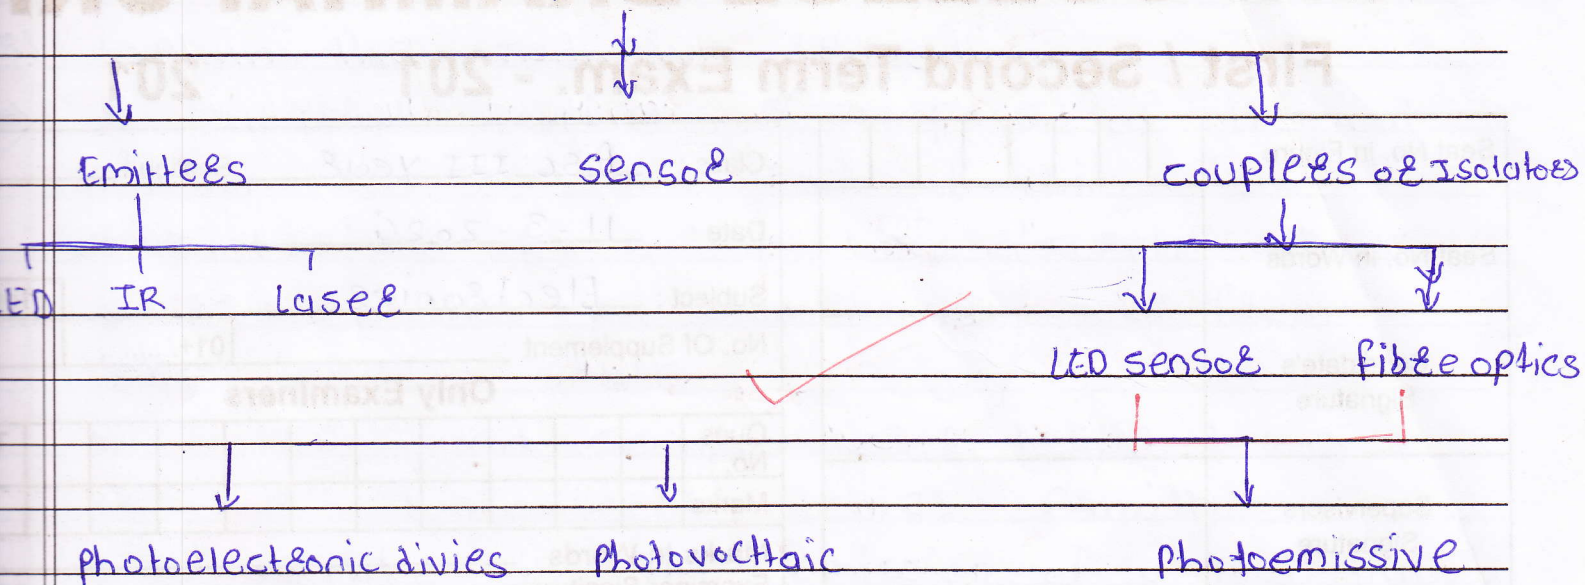 Emitters sensor couplers or Isolators
ED IR Laser
LED sensor fibre optics
photoelectronic divies photovolttaic photoemissive